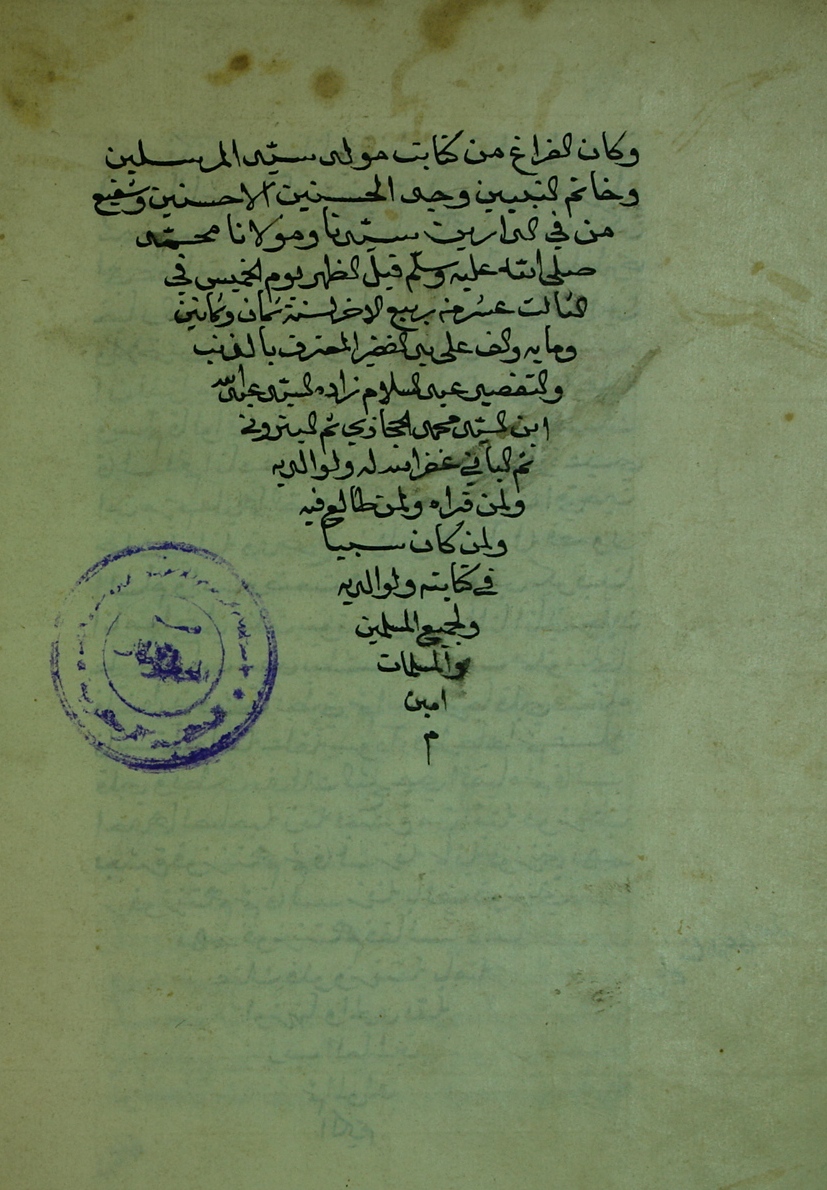 وكان الفراغ من كتابت مولد سيد المرسلين
وخاتم النبيين وجد الحسنين الاحسنين وشفيع
من في الدارين سيدنا ومولانا محمد
صلى الله عليه وسلم قبل الظهر يوم الخميس في
الثالث عشر منه ربيع الاخر لسنة ثمان وثمانين
ومايه والف على يد الفقير المعترف بالذنب
والتقصير عبد السلام زاده السيد عبد الله
ابن السيد محمد الحجازي ثم البتروني
ثم غفر الله له ولوالديه
ولمن قراه ولمن طالع فيه
ولمن كان سببا
في كتابته ولوالديه
ولجميع المسلمين
والمسلمات
امين
م